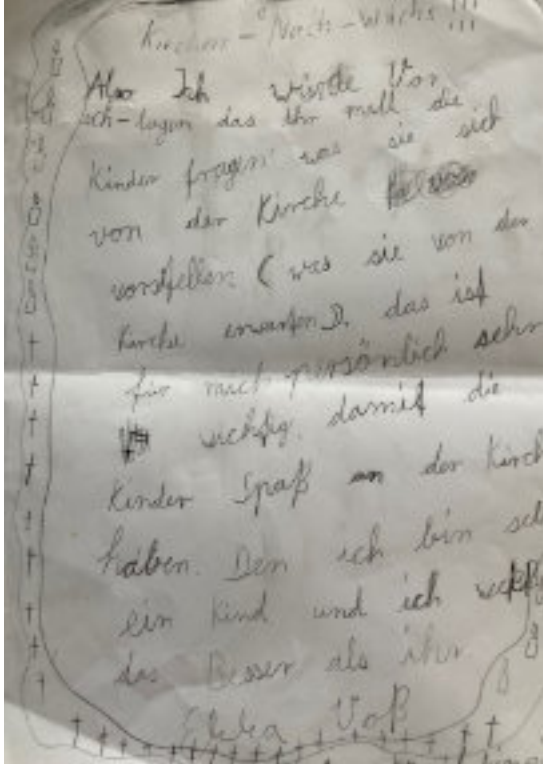 Kirchen-Nach-Wuchs!!!
Also Ich würde Vor
sch-lagen das ihr mall die
Kinder fragen was sie sich
von der Kirche
vorstfellen (was sie von der
Kirche erwarten), das ist
für mich persönlich sehr
wichtig, damit die
Kinder Spaß an der Kirch
haben. Den ich bin sel
ein Kind und ich
das Besser als ihr
Voß